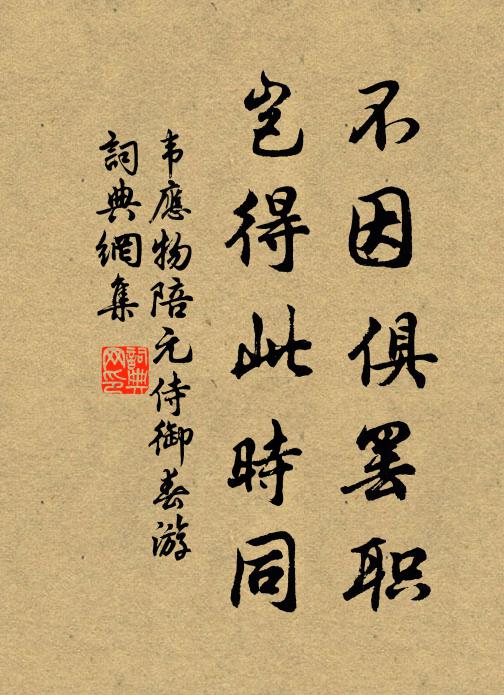 不因俱罢职
岂得此時同
韦應物陪元侍御春游
詞典網集
詞典網印